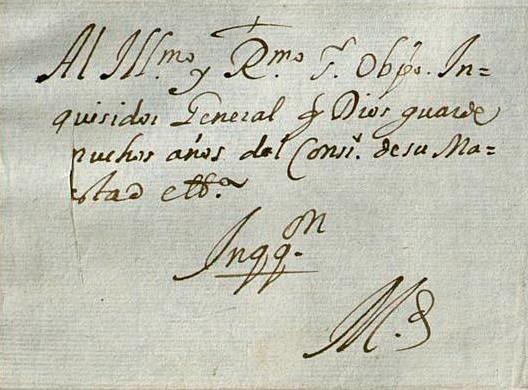 Al Ill.mo y R.mo S.r Obpo. In=
quisidor General q Dios guarde
muchos años del Consº. de su Ma=
estad etc.ª
Inqq.on
M.d